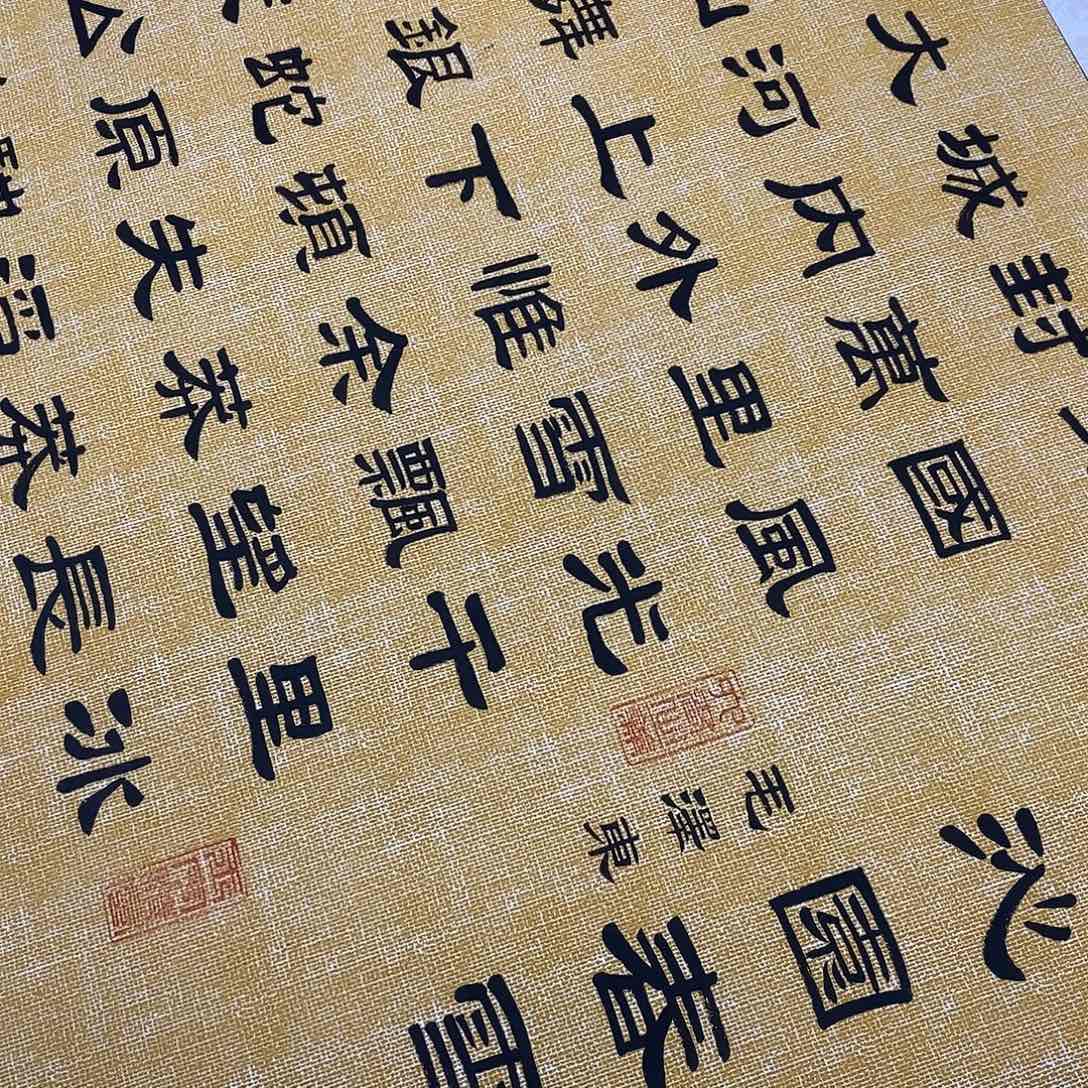 沁園春 雪
毛澤東
國風光千里冰
封萬里雪飄望長
城內外惟余莽莽
大河上下頓失滔
山舞銀蛇原馳
公